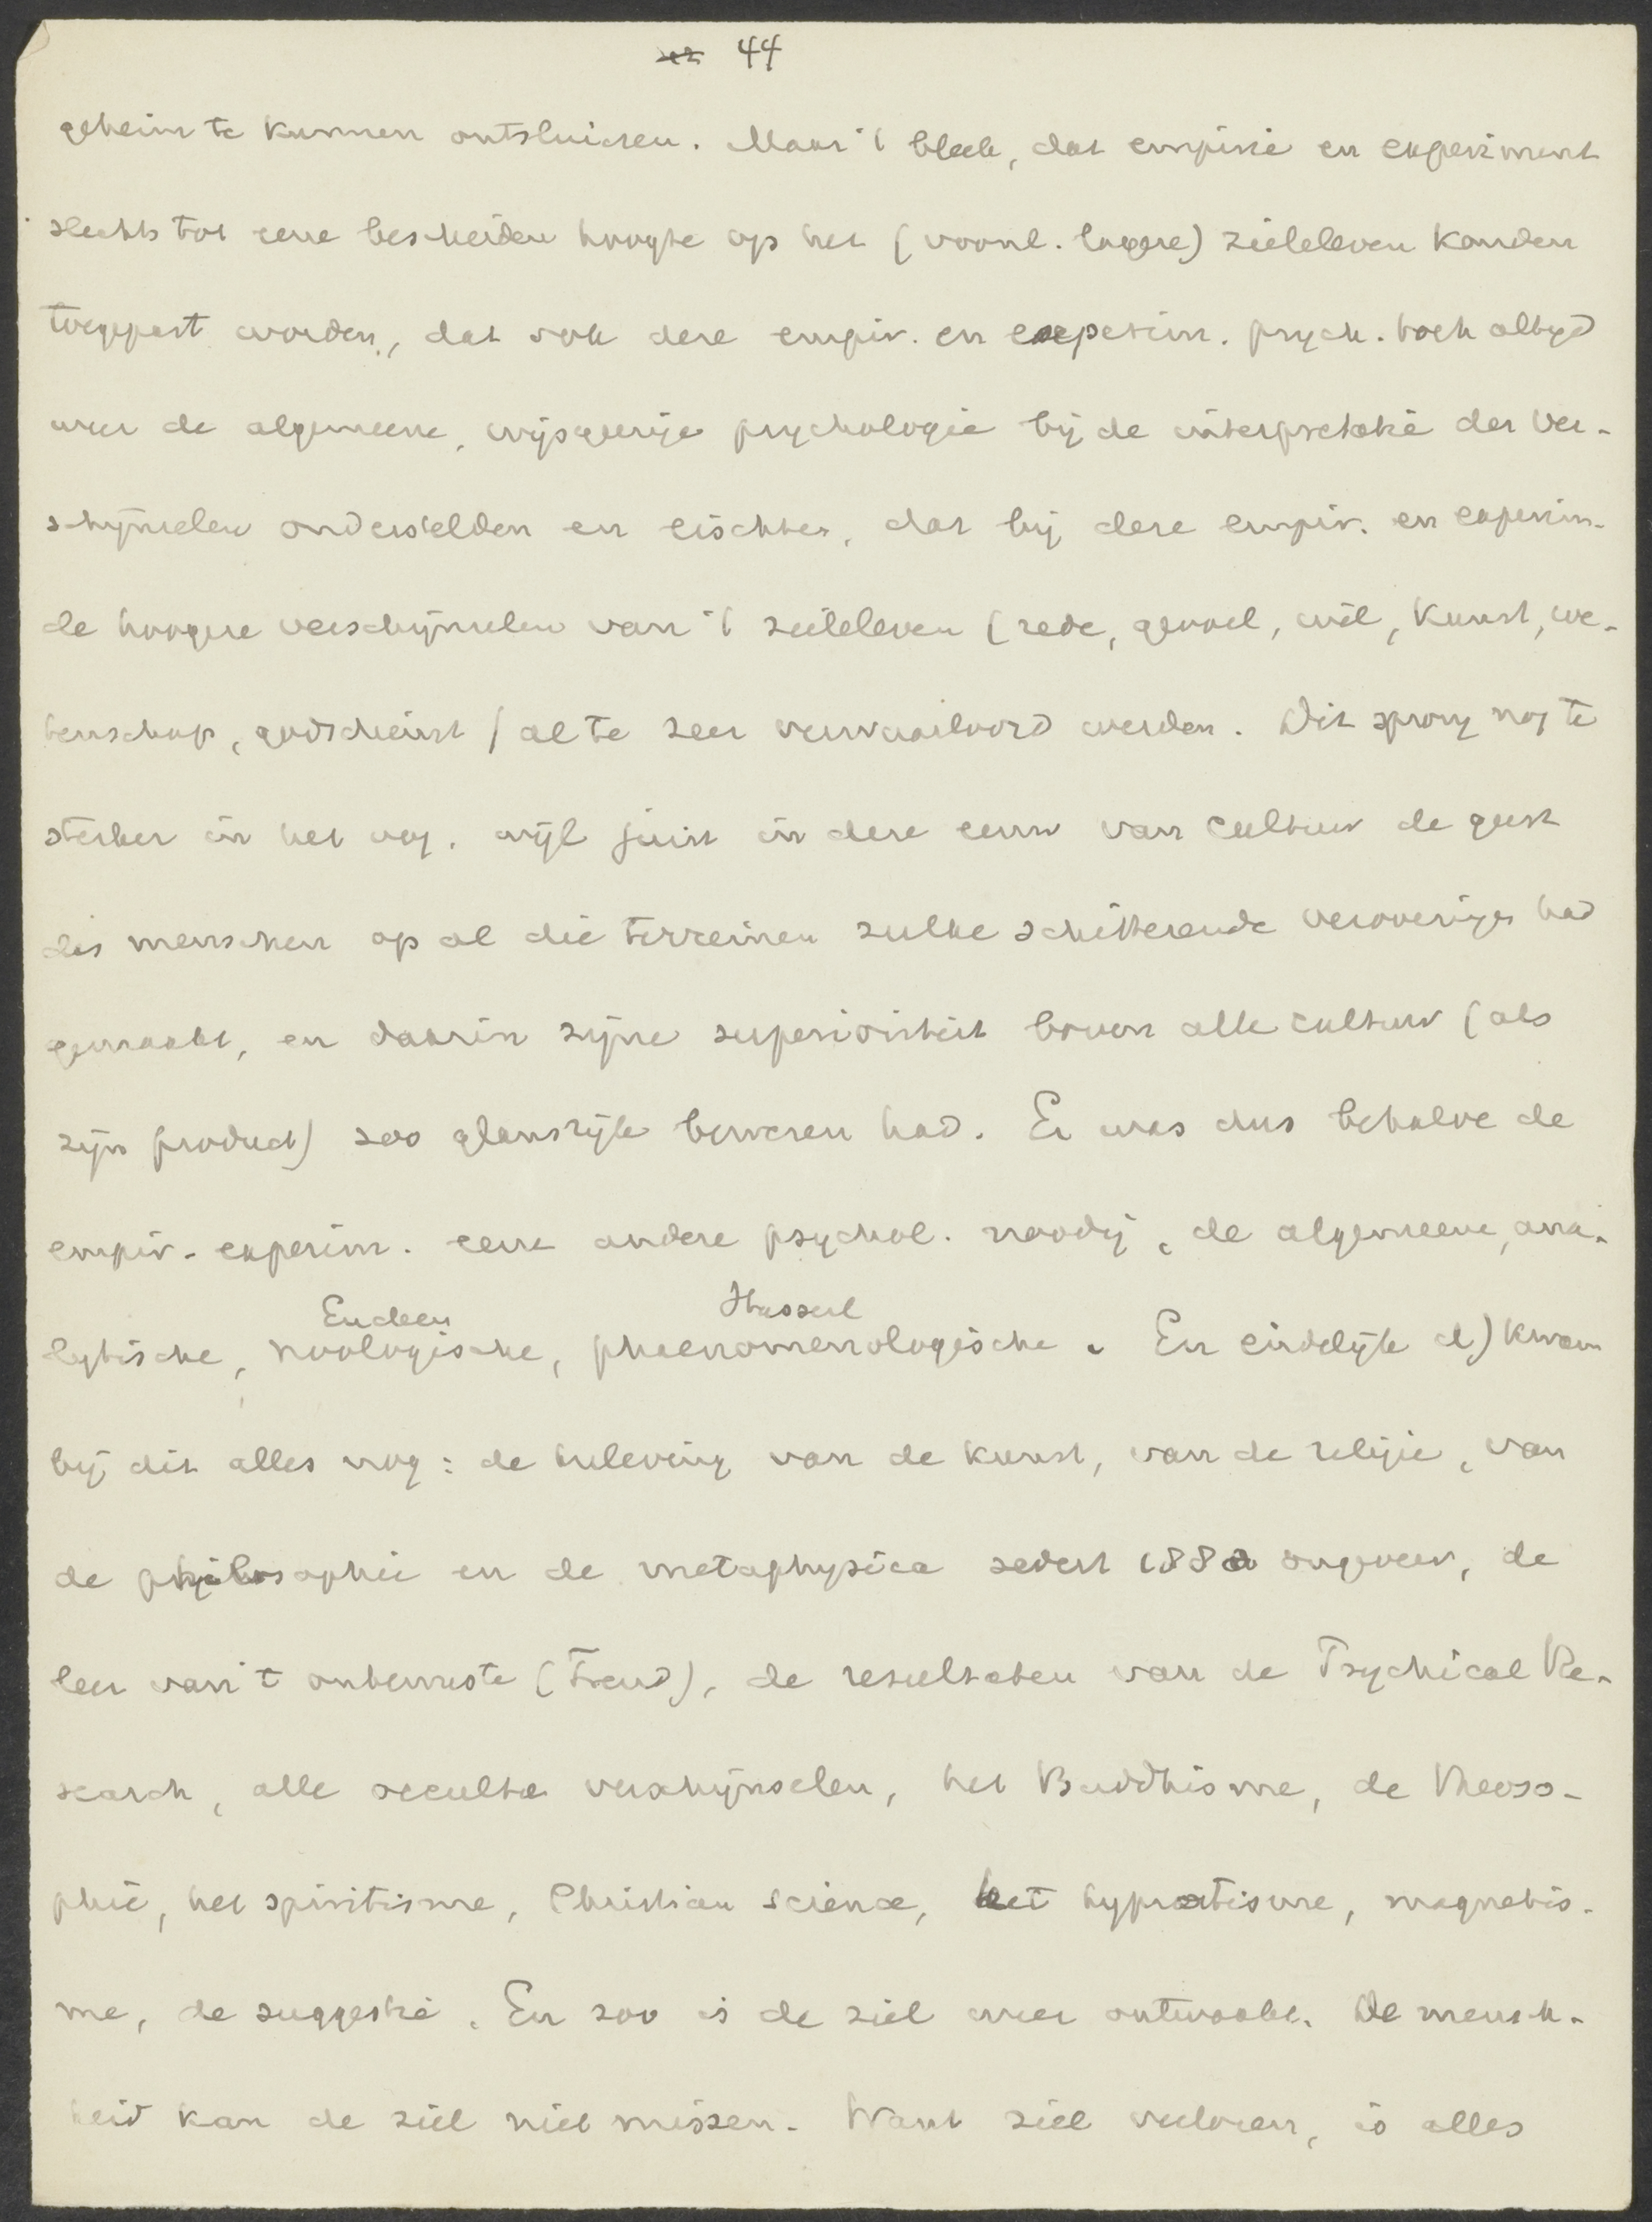 44
geheim te kunnen ontsluieren. Maar 't bleek, dat empirie en experiment
slechts tot eene bescheiden hoogte op het (voorn. lagere) zieleleven konden
toegepast worden, dat ook deze empir. en experim. psych. toch altijd
weer de algemeene, wijsgeerige psychologie bij de interpretatie der ver-
schijnselen onderstelden en eischten, dat bij deze empir. en experim.
de hoogere verschijnselen van 't zieleleven (rede, gevoel, wil, kunst, we-
tenschap, godsdienst) al te zeer verwaarloosd werden. Dit sprong nog te
sterker in het oog, wijl juist in deze eeuw van cultuur de geest
des menschen op al die terreinen zulke schitterende veroveringen had
gemaakt, en daarin zijne superioriteit boven alle cultuur (als
zijn product) zoo glansrijk bewezen had. Er was dus behalve de
empir.-experim. eene andere psychol. noodig, de algemeene, ana-
Eucken Husserl
lytische, noologische, phaenomenologische. En eindelijk d) kwam
bij dit alles nog: de herleving van de kunst, van de religie, van
de philosophie en de metaphysica sedert 1880 ongeveer, de
leer van 't onbewuste (Freud), de resultaten van de Psychical Re-
search, alle occulte verschijnselen, het Buddhisme, de Theoso-
phie, het spiritisme, Christian Science, het hypnotisme, magnetis-
me, de suggestie. En zoo is de ziel weer ontwaakt. De mensch-
heid kan de ziel niet missen. Want ziel verloren, is alles